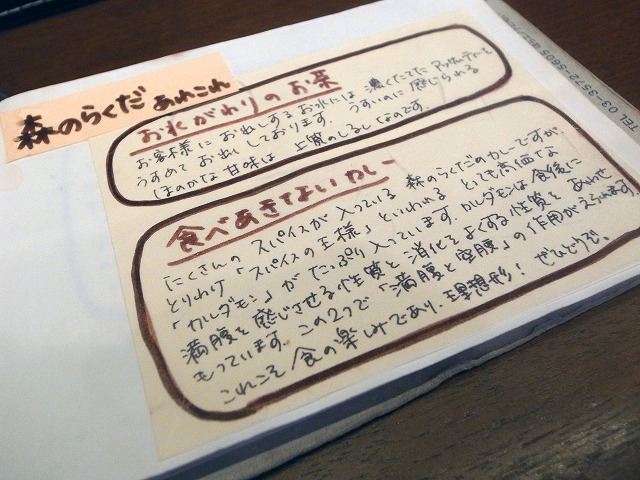 森のらくだ あれこれ
お水がわりのお茶
お客様にお出しするお水には 濃くたてた アッサムティーを
うすめて お出ししております. うすいのに 感じられる
ほのかな甘味は 上質のしるしなのです.
食べあきないカレー
たくさんの スパイスが 入っている 森のらくだのカレーですが.
とりわけ「スパイスの王様」といわれる とても高価な
「カルダモン」が たっぷり入っています. カルダモンは食後に
満腹を感じさせる性質と 消化をよくする性質を あわせ
もっています. この2つで「満腹と空腹」の作用がえられます.
これこそ 食の楽しみであり. 理想形! ぜひどうぞ.
TEL 03-3572-5805